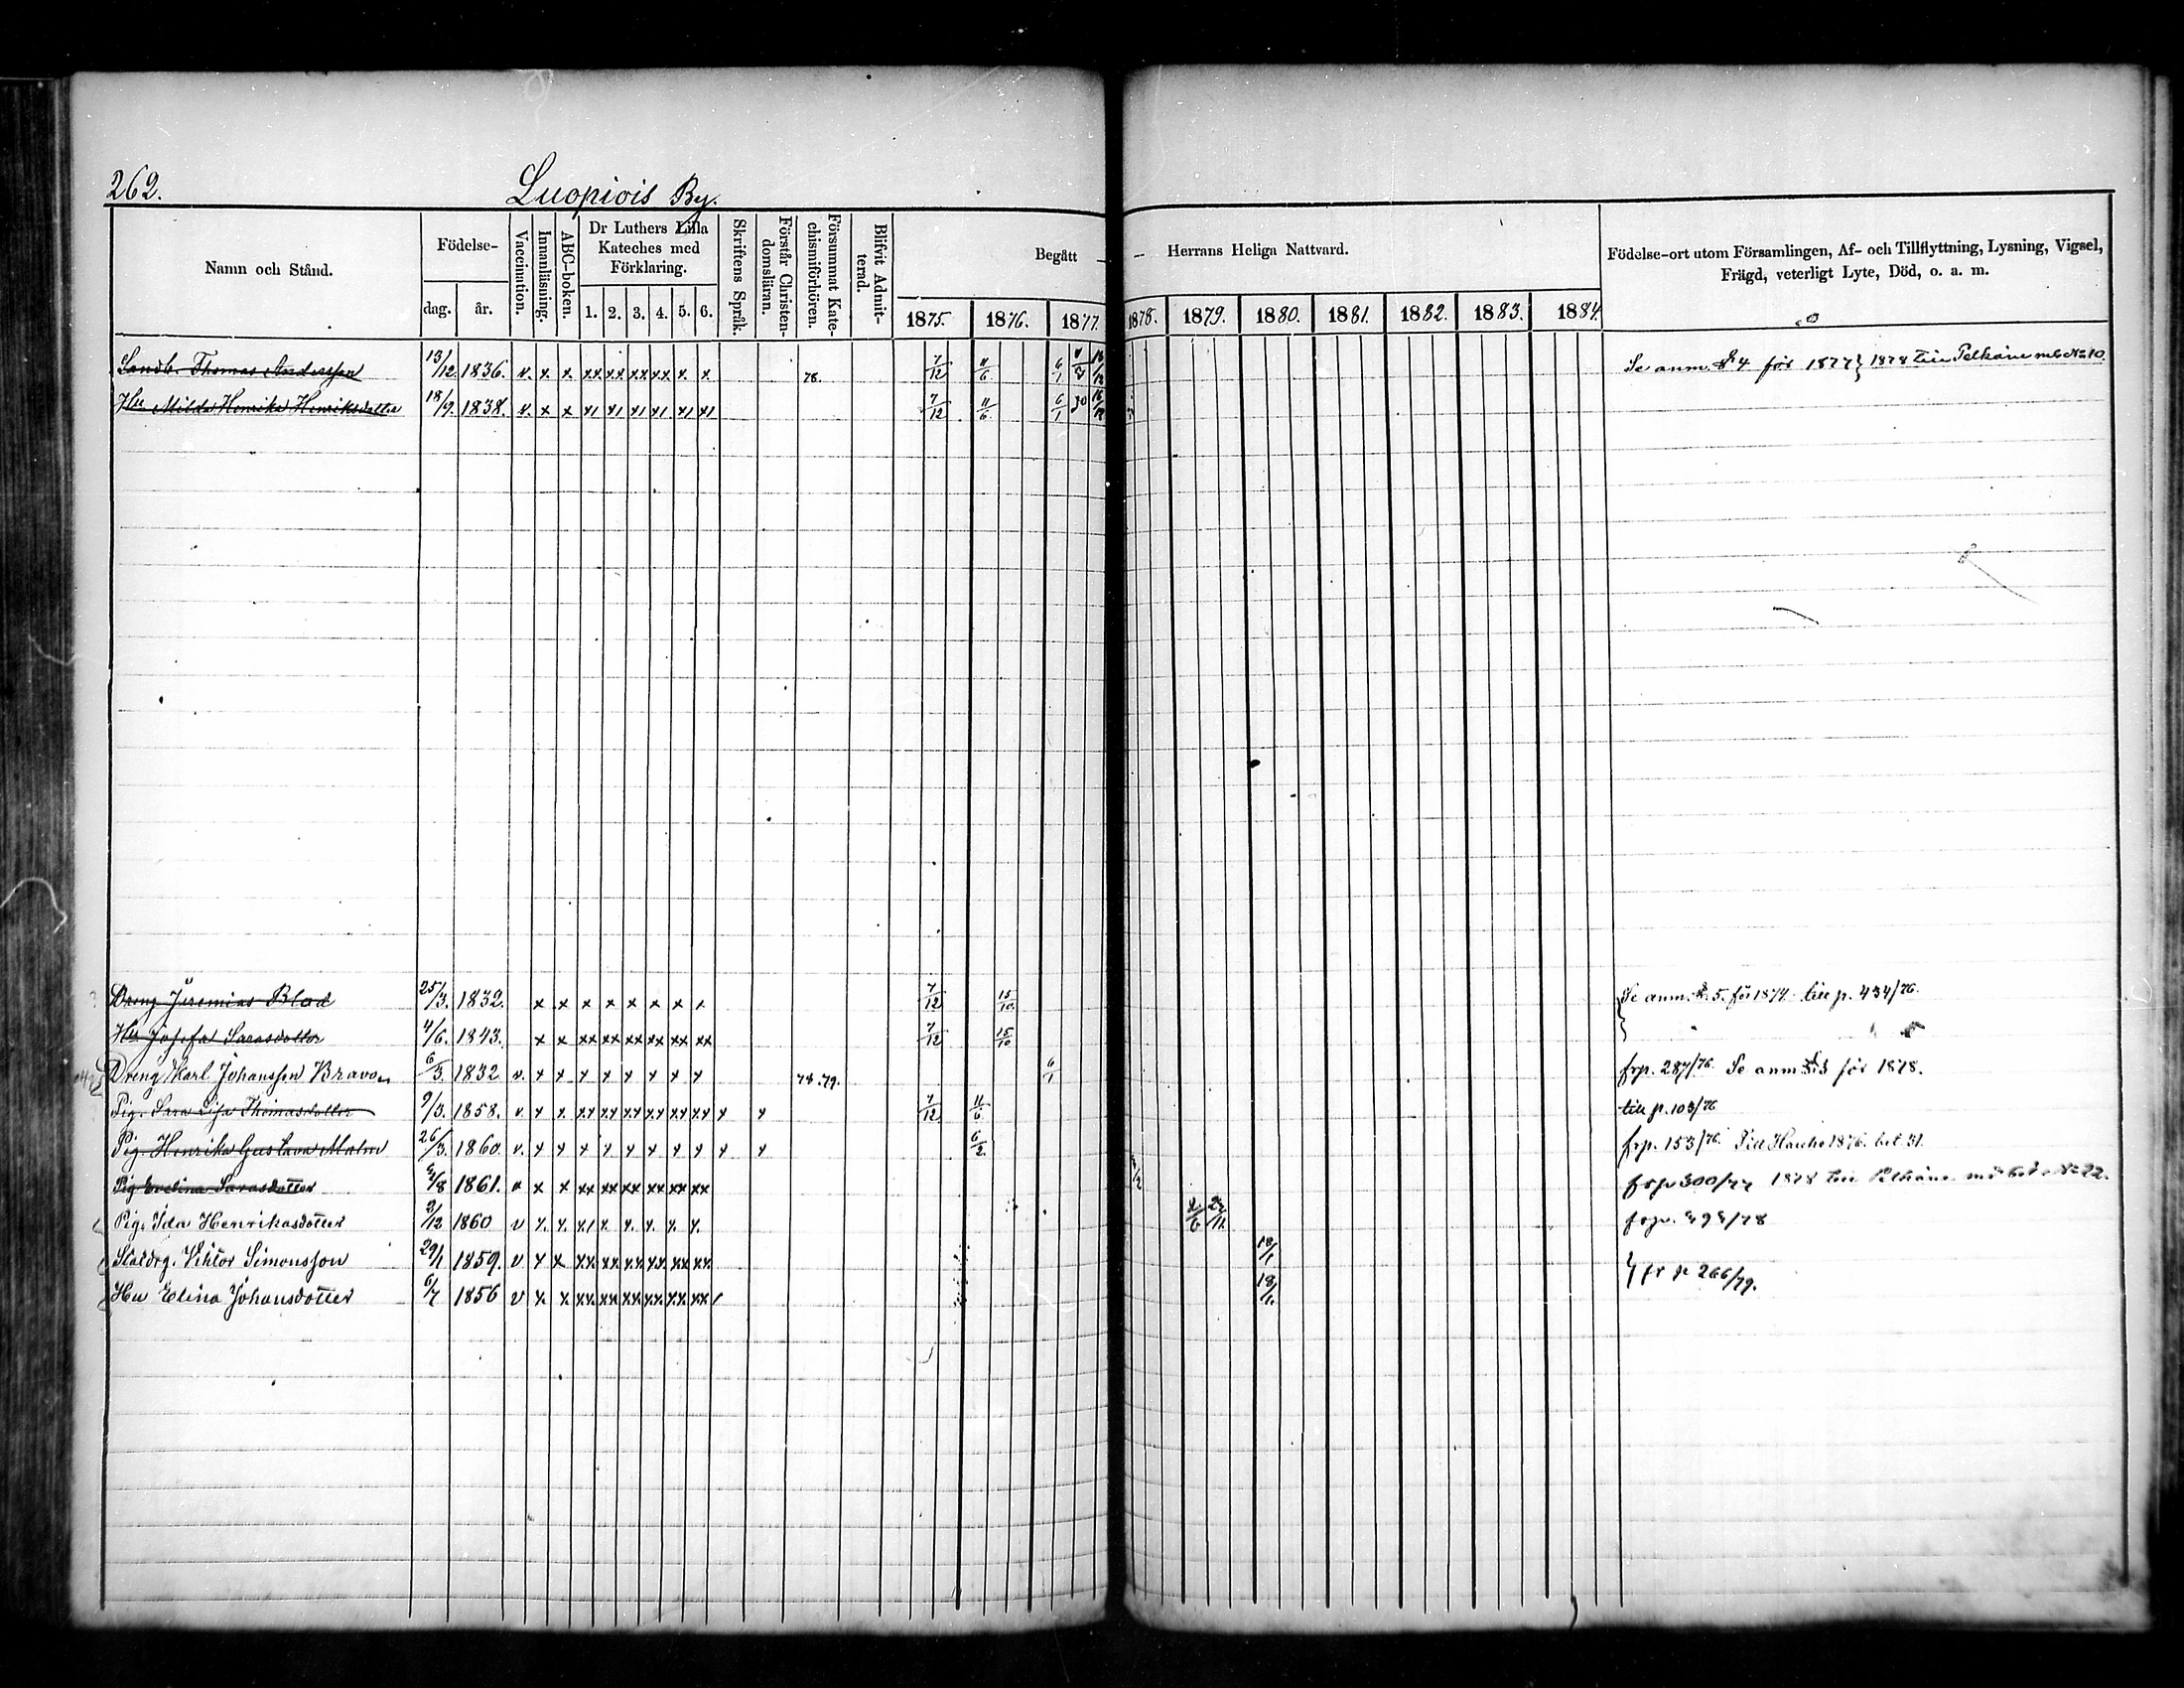 262.
Luopiois By.
Namn och Stånd.
Födelse-
dag. år.
Vaccination.
Innanläsning.
ABC-boken.
Dr Luthers Lilla Kateches med Förklaring.
1. 2. 3. 4. 5. 6.
Skriftens Språk.
Förstår Christendomsläran.
Försummat Katechismiförhören.
Blifvit Admitterad.
Begått Herrans Heliga Nattvard.
1875. 1876. 1877. 1878. 1879. 1880. 1881. 1882. 1883. 1884.
Födelse-ort utom Församlingen, Af- och Tillflyttning, Lysning, Vigsel,
Frägd, veterligt Lyte, Död, o. a. m.
Thomas Andersson 13/12 1836. v. x. x. xx xx xx xx x. x 78. 7/12 11/6 6/1 Se anm. 4 för 1877 } 1878 till Pelkäne
Hu Milda Henrika Henriksdotter 18/9. 1838. v. x x x1 x1 x1 x1 x1 x1 7/12 11/6 6/1
Dreng Jeremias Blad 25/3. 1832. x x x x x x x x. 7/12 15/10 Se anm. 5. för 1874 till p. 434/76.
Hu Josefa Sarasdotter 4/6. 1843. x x xx xx xx xx xx xx 7/12 15/10
Dreng Karl Johansson Bravo 6/3. 1832 v. x x x x x x x x 78.79. 6/1 frp. 287/76. Se anm för 1878.
Pig. Sara Lisa Thomasdotter 9/3. 1858. v. x x. xx xx xx xx xx xx x x 7/12 11/6 till p. 103/76
Pig. Henrika Gustava Malm 26/3. 1860. v. x x x x x x x x x x 6/2 frp. 153/76. Till Hauho 1876. bet 31.
Pig Evelina Sarasdotter 1861. v x x xx xx xx xx xx xx frp 300/77 1878 till Pelkäne
Pig. Ida Henrikasdotter 2/12 1860 v x. x. x1 x. x. x. x. x. frp.
Viktor Simonsson 29/1 1859. v x x xx xx xx xx xx xx 18/1
Hu Elina Johansdotter 6/7 1856 v x x xx xx xx xx xx xx 18/1 } fr p 266/79.